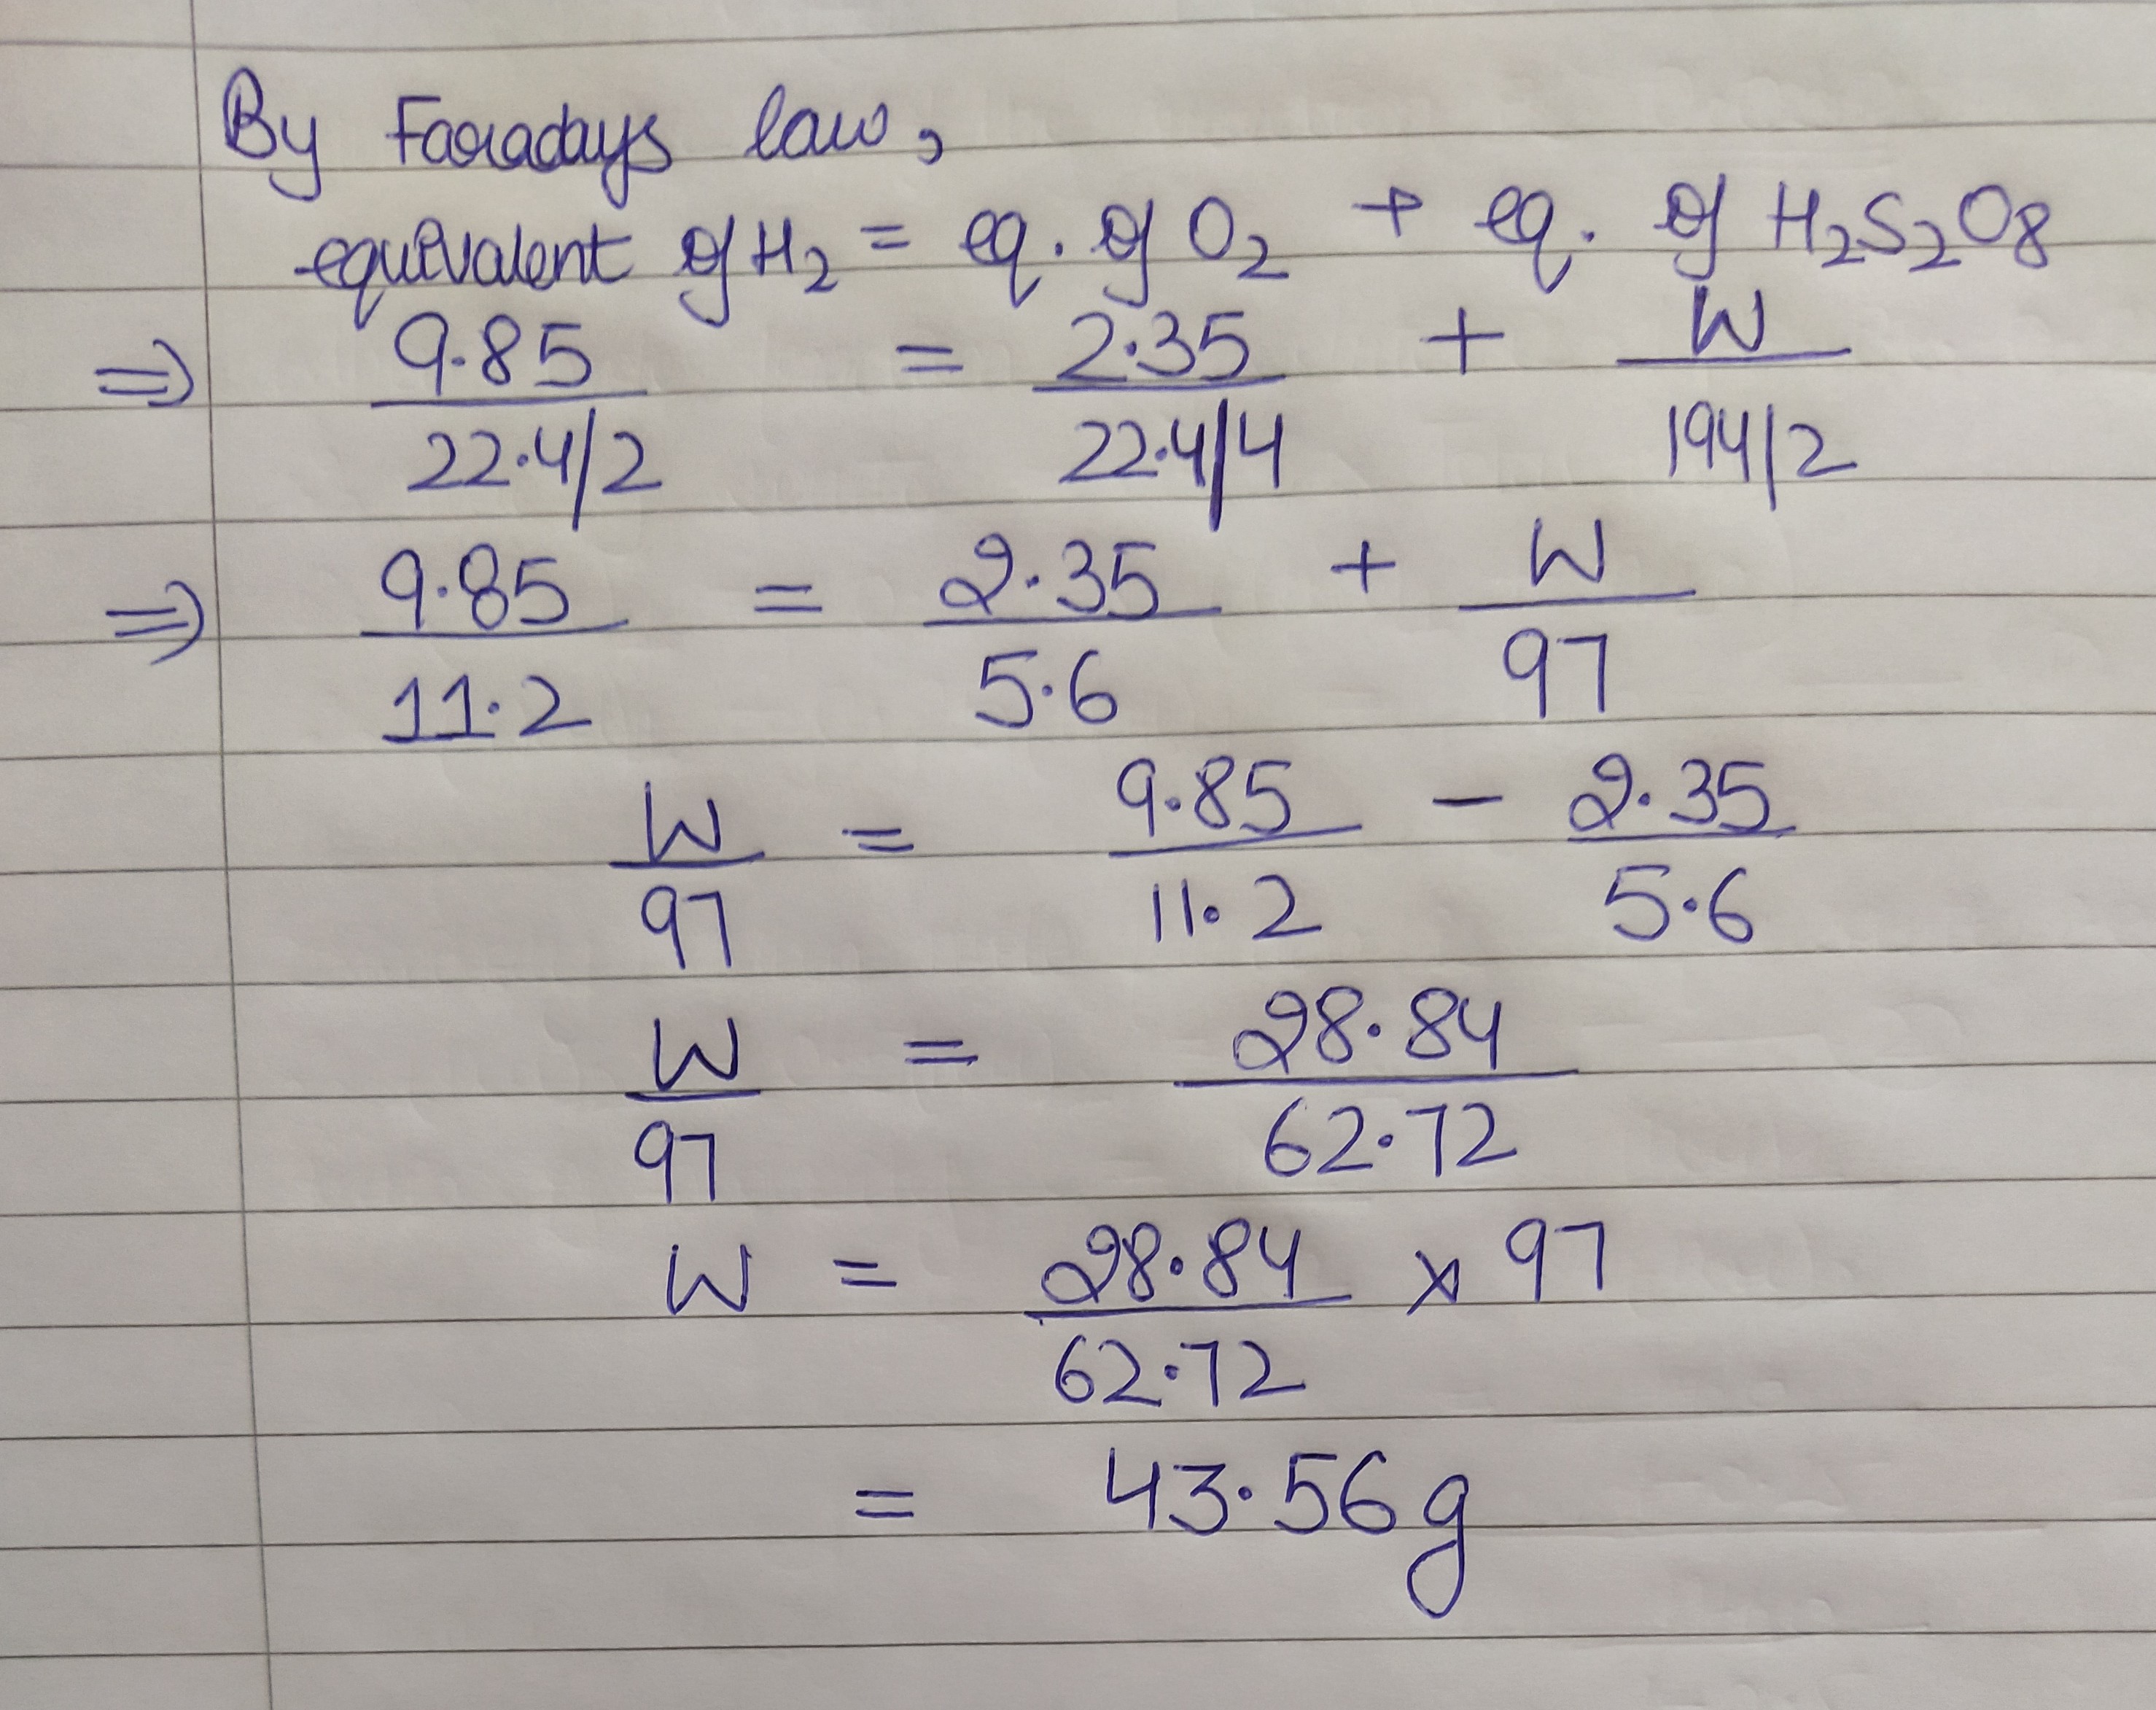 By Faradays law,
equivalent of H₂ = eq. of O₂ + eq. of H₂S₂O8
⇒ 9.85 / 22.4/2 = 2.35 / 22.4/4 + W / 194/2
⇒ 9.85 / 11.2 = 2.35 / 5.6 + W / 97
W / 97 = 9.85 / 11.2 - 2.35 / 5.6
W / 97 = 28.84 / 62.72
W = 28.84 / 62.72 × 97
= 43.56 g